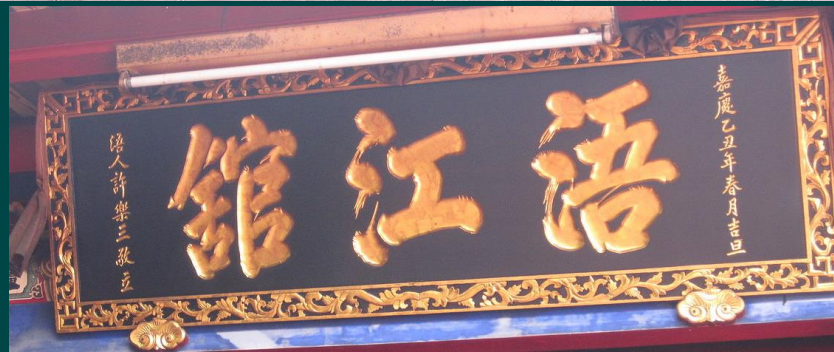 嘉慶乙丑年春月吉旦
浯江館
浯人許樂三敬立